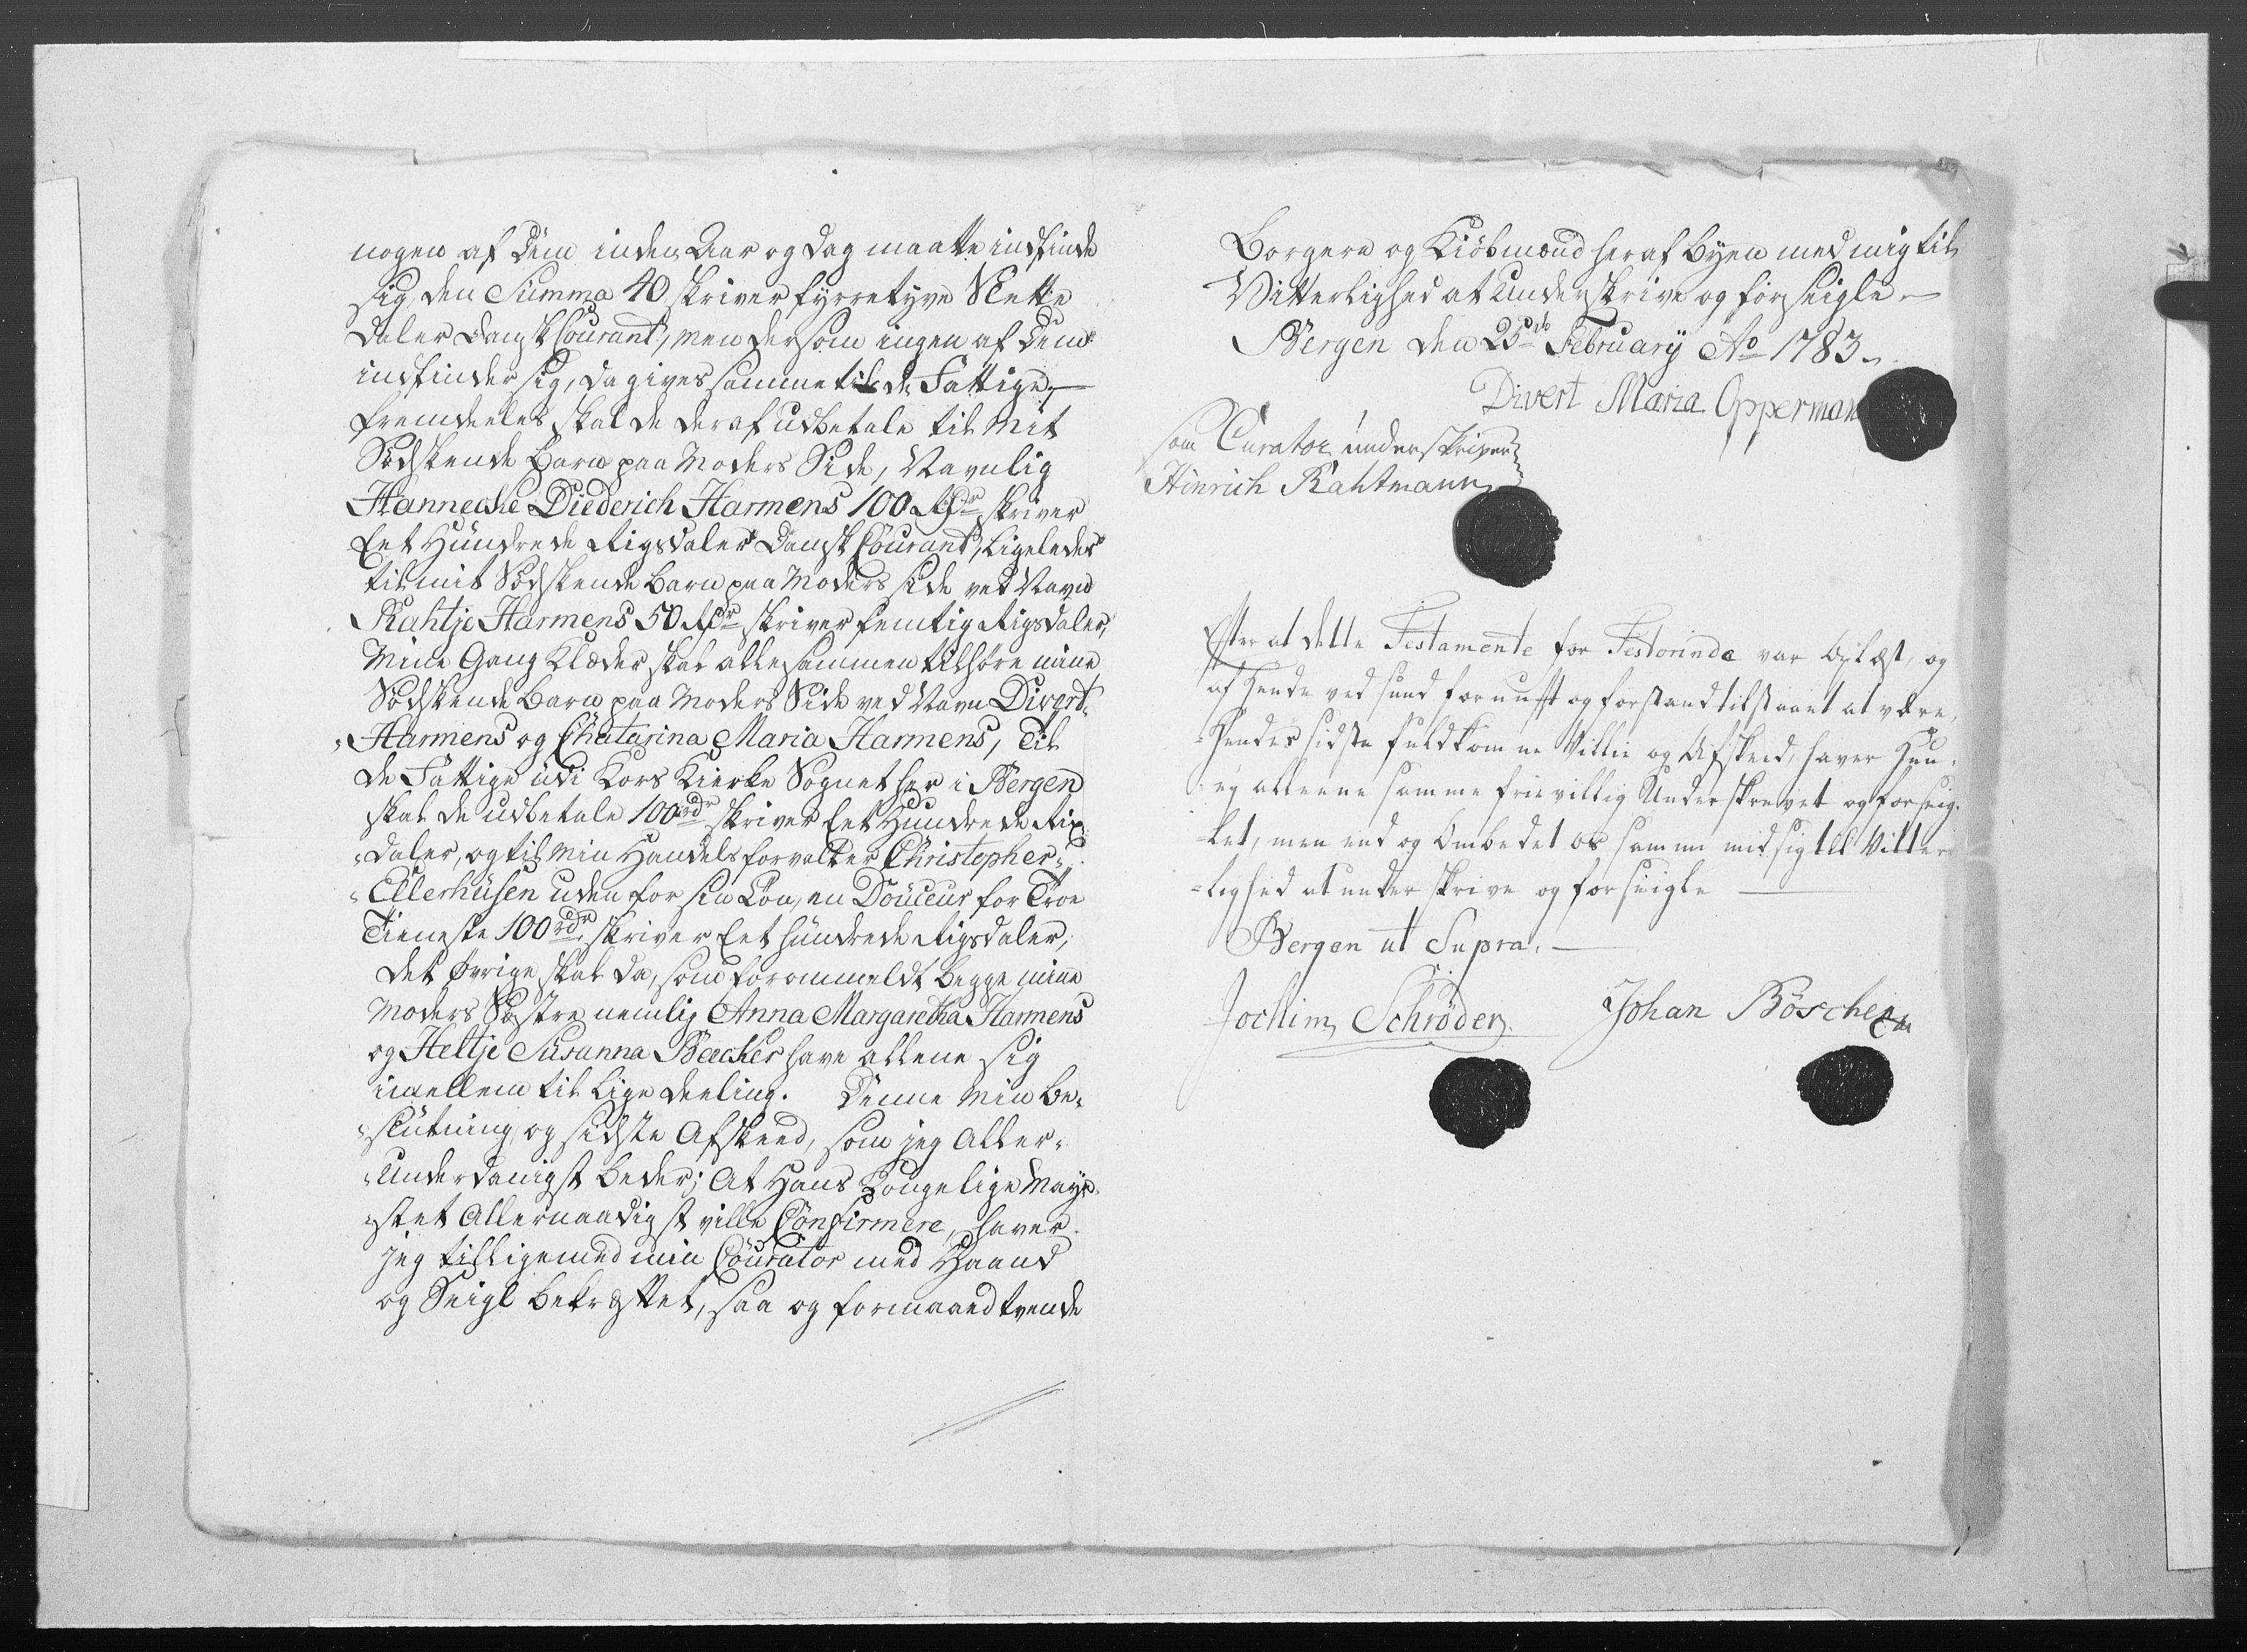 nogen af dem inden Aar og dag maatte indfinde
sig, den Summa 40 skriver fyrretyve Slette
Daler Dansk Courant, men dersom ingen af dem
indfinder sig, da gives samme til de Fattige,
fremdeeles skal de deraf udbetale til mit
Södskende Barn paa Moders Side, Navnlig
Hannecke Diederich Harmens 100 Rdr skriver
Eet Hundrede Rigsdaler Dansk Courant, ligeledes
til mit Södskende Barn paa Moders side ved Navn
Kahtje Harmens 50 Rdr skriver femtig Rigsdaler,
Mine Gang Klæder skal allesammen tilhöre mine
Södskende Barn paa Moders Side ved Navn Divert
Harmens og Chatarina Maria Harmens, Til
de Fattige udi Kors Kierke Sognet her i Bergen
skal de udbetale 100 rdr skriver Eet Hundrede Rix
daler, og til min Handels forvalter Christopher
Ellerhusen uden for sin Lön, en Douceur for Troe
Tieneste 100 rdr skriver Eet hundrede Rigsdaler,
det övrige skal da, som forommeldt begge mine
Moders Söstre nemlig Anna Margaretha Harmens
og Heltje Susanna Beecker have allene sig
imellem til lige deeling. Denne min be-
slutning og sidste Afskeed, som jeg Aller-
underdanigst beder; At Hans Kongelige Maye-
stet Allernaadigst ville Confirmere, haver
jeg tilligemed min Courator med Haand
og Seigl bekræftet, saa og formaaed tvende
Borgere og Kiöbmænd her af Byen med mig til
Vitterlighed at Underskrive og forseigle
Bergen den 25de February Ao 1783
Divert Maria Opperman
som Curator underskriver
Hinrich Rahtmann
Efter at dette Testamente for Testorinde var Oplæst, og
af Hende ved sund fornufft og forstand tilstaaet at være,
Hendes sidste fuldkomne Villie og Afskeed, haver Hun
ey alleene samme frievillig Underskrevet og forseig-
let, men end og Ombedet os samme med sig til Vitter-
lighed at underskrive og forseigle
Bergen ut Supra.
Jochim Schröder
Johan Böschen